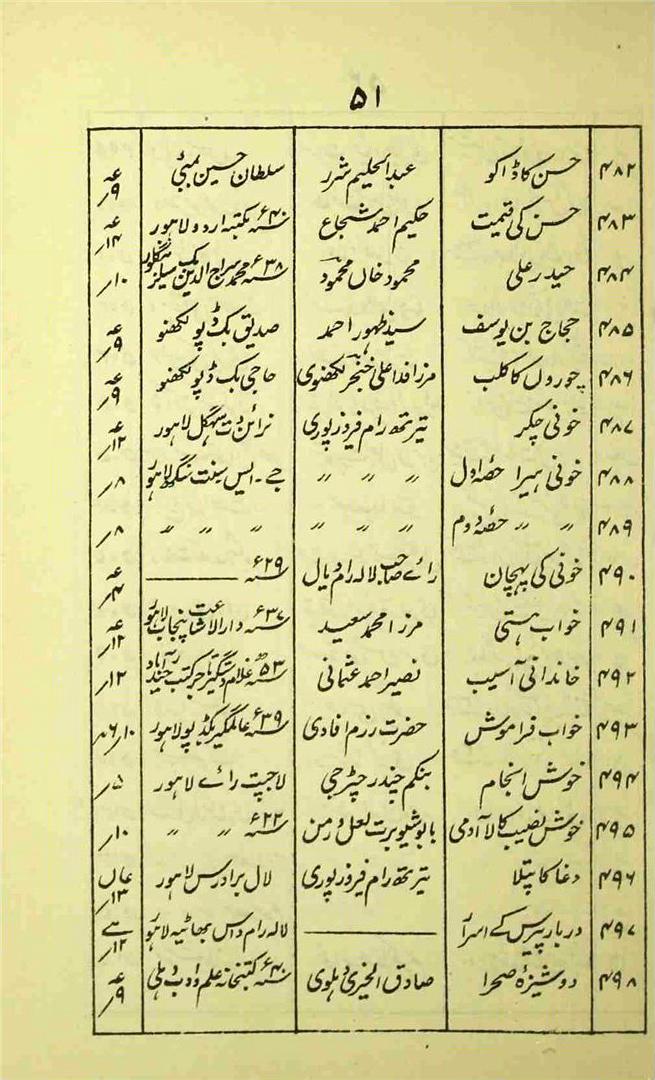 ۵۱
۴۸۲ حسن کا ڈاکو عبدالحلیم شرر سلطان حسین بمبئی عہ ۹ر
۴۸۳ حسن کی قیمت حکیم احمد شجاع ۴۰ء مکتبہ اردو لاہور عہ ۱۴ر
۴۸۴ حیدر علی محمود خاں محمود ۳۸ء محمد سراج الدین بک سیلر بنگلور ۱۰ر
۴۸۵ حجاج بن یوسف سید ظہور احمد صدیق بک ڈپو لکھنو عہ ۹ر
۴۸۶ چوروں کا کلب مرزا فدا علی خنجر لکھنوی حاجی بک ڈپو لکھنو عہ ۹ر
۴۸۷ خونی چکر تیرتھ رام فیروزپوری نرائن دت سہگل لاہور عہ ۱۲ر
۴۸۸ خونی ہیرا حصہ اول 〃 〃 〃 جے۔ ایس سنت سنگھ لاہور ۸ر
۴۸۹ 〃 〃 حصہ دوم 〃 〃 〃 〃 〃 〃 〃 ۸ر
۴۹۰ خونی کی پہچان رائے صاحب لالہ رام دیال ۲۹ء ——— عہ ۴ر
۴۹۱ خواب ہستی مرزا محمد سعید ۳۷ء دارالاشاعت پنجاب لاہور عہ ۱۲ر
۴۹۲ خاندانی آسیب نصیر احمد عثمانی ۵۳ھ غلام دستگیر تاجر کتب حیدرآباد ۱۲ر
۴۹۳ خواب فراموش حضرت رزم افادی ۳۹ء عالمگیر بکڈپو لاہور ۱۰ر
۴۹۴ خوش انجام بنکم چندر چٹرجی لاجپت رائے لاہور ۵ر
۴۹۵ خوش نصیب کالا آدمی بابو شیو برت لعل ورمن ۲۲ء 〃 〃 ۱۰ر
۴۹۶ دغا کا پتلا تیرتھ رام فیروزپوری لال برادرس لاہور ۱۳ر
۴۹۷ دربار پیرس کے اسرار ——— لالہ رام داس بھاٹیہ لاہور ۱۲ر
۴۹۸ دوشیزۂ صحرا صادق الخیری دہلوی ۴۰ء کتبخانہ علم و ادب دہلی عہ ۹ر